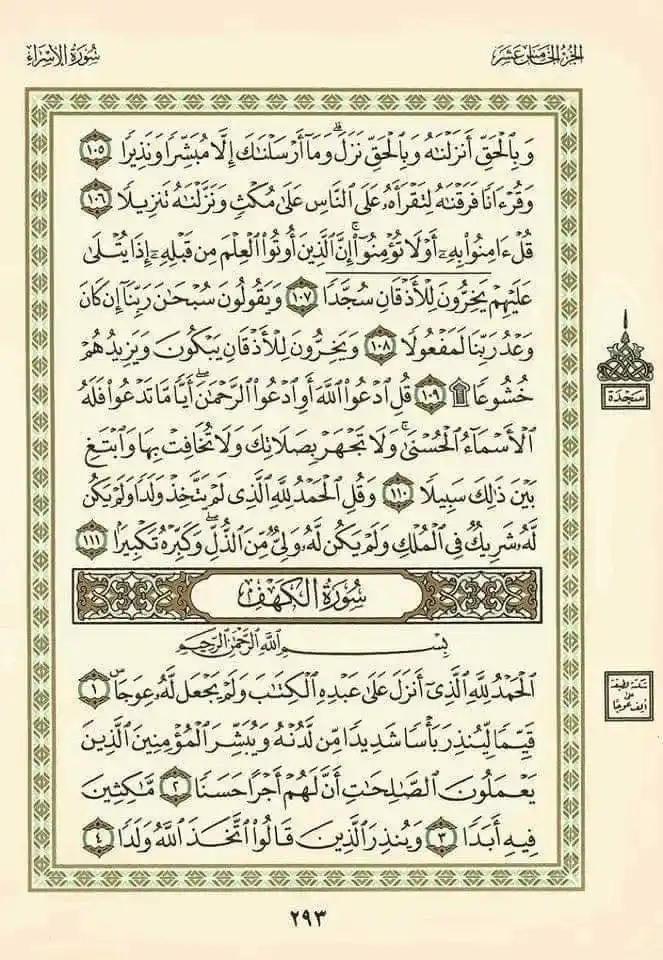 الجزء الخامس عشر
سورة الإسراء
وَبِٱلۡحَقِّ أَنزَلۡنَٰهُ وَبِٱلۡحَقِّ نَزَلَۗ وَمَآ أَرۡسَلۡنَٰكَ إِلَّا مُبَشِّرٗا وَنَذِيرٗا ١٠٥
وَقُرۡءَانٗا فَرَقۡنَٰهُ لِتَقۡرَأَهُۥ عَلَى ٱلنَّاسِ عَلَىٰ مُكۡثٖ وَنَزَّلۡنَٰهُ تَنزِيلٗا ١٠٦
قُلۡ ءَامِنُواْ بِهِۦٓ أَوۡ لَا تُؤۡمِنُوٓاْۚ إِنَّ ٱلَّذِينَ أُوتُواْ ٱلۡعِلۡمَ مِن قَبۡلِهِۦٓ إِذَا يُتۡلَىٰ
عَلَيۡهِمۡ يَخِرُّونَ لِلۡأَذۡقَانِۤ سُجَّدٗاۤ ١٠٧ وَيَقُولُونَ سُبۡحَٰنَ رَبِّنَآ إِن كَانَ
وَعۡدُ رَبِّنَا لَمَفۡعُولٗا ١٠٨ وَيَخِرُّونَ لِلۡأَذۡقَانِ يَبۡكُونَ وَيَزِيدُهُمۡ
خُشُوعٗا۩ ١٠٩ قُلِ ٱدۡعُواْ ٱللَّهَ أَوِ ٱدۡعُواْ ٱلرَّحۡمَٰنَۖ أَيّٗا مَّا تَدۡعُواْ فَلَهُ
ٱلۡأَسۡمَآءُ ٱلۡحُسۡنَىٰۚ وَلَا تَجۡهَرۡ بِصَلَاتِكَ وَلَا تُخَافِتۡ بِهَا وَٱبۡتَغِ
بَيۡنَ ذَٰلِكَ سَبِيلٗا ١١٠ وَقُلِ ٱلۡحَمۡدُ لِلَّهِ ٱلَّذِي لَمۡ يَتَّخِذۡ وَلَدٗا وَلَمۡ يَكُن
لَّهُۥ شَرِيكٞ فِي ٱلۡمُلۡكِ وَلَمۡ يَكُن لَّهُۥ وَلِيّٞ مِّنَ ٱلذُّلِّۖ وَكَبِّرۡهُ تَكۡبِيرَۢا ١١١
سجدة
سورة الكهف
بِسۡمِ ٱللَّهِ ٱلرَّحۡمَٰنِ ٱلرَّحِيمِ
ٱلۡحَمۡدُ لِلَّهِ ٱلَّذِيٓ أَنزَلَ عَلَىٰ عَبۡدِهِ ٱلۡكِتَٰبَ وَلَمۡ يَجۡعَل لَّهُۥ عِوَجَاۜ ١
قَيِّمٗا لِّيُنذِرَ بَأۡسٗا شَدِيدٗا مِّن لَّدُنۡهُ وَيُبَشِّرَ ٱلۡمُؤۡمِنِينَ ٱلَّذِينَ
يَعۡمَلُونَ ٱلصَّٰلِحَٰتِ أَنَّ لَهُمۡ أَجۡرًا حَسَنٗا ٢ مَّٰكِثِينَ
فِيهِ أَبَدٗا ٣ وَيُنذِرَ ٱلَّذِينَ قَالُواْ ٱتَّخَذَ ٱللَّهُ وَلَدٗا ٤
سكتة لطيفة
على
ألف عوجا
٢٩٣